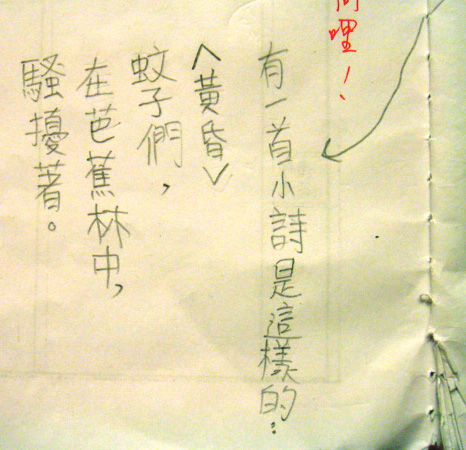 哩！
有一首小詩是這樣的：
〈黃昏〉
蚊子們，
在芭蕉林中，
騷擾著。